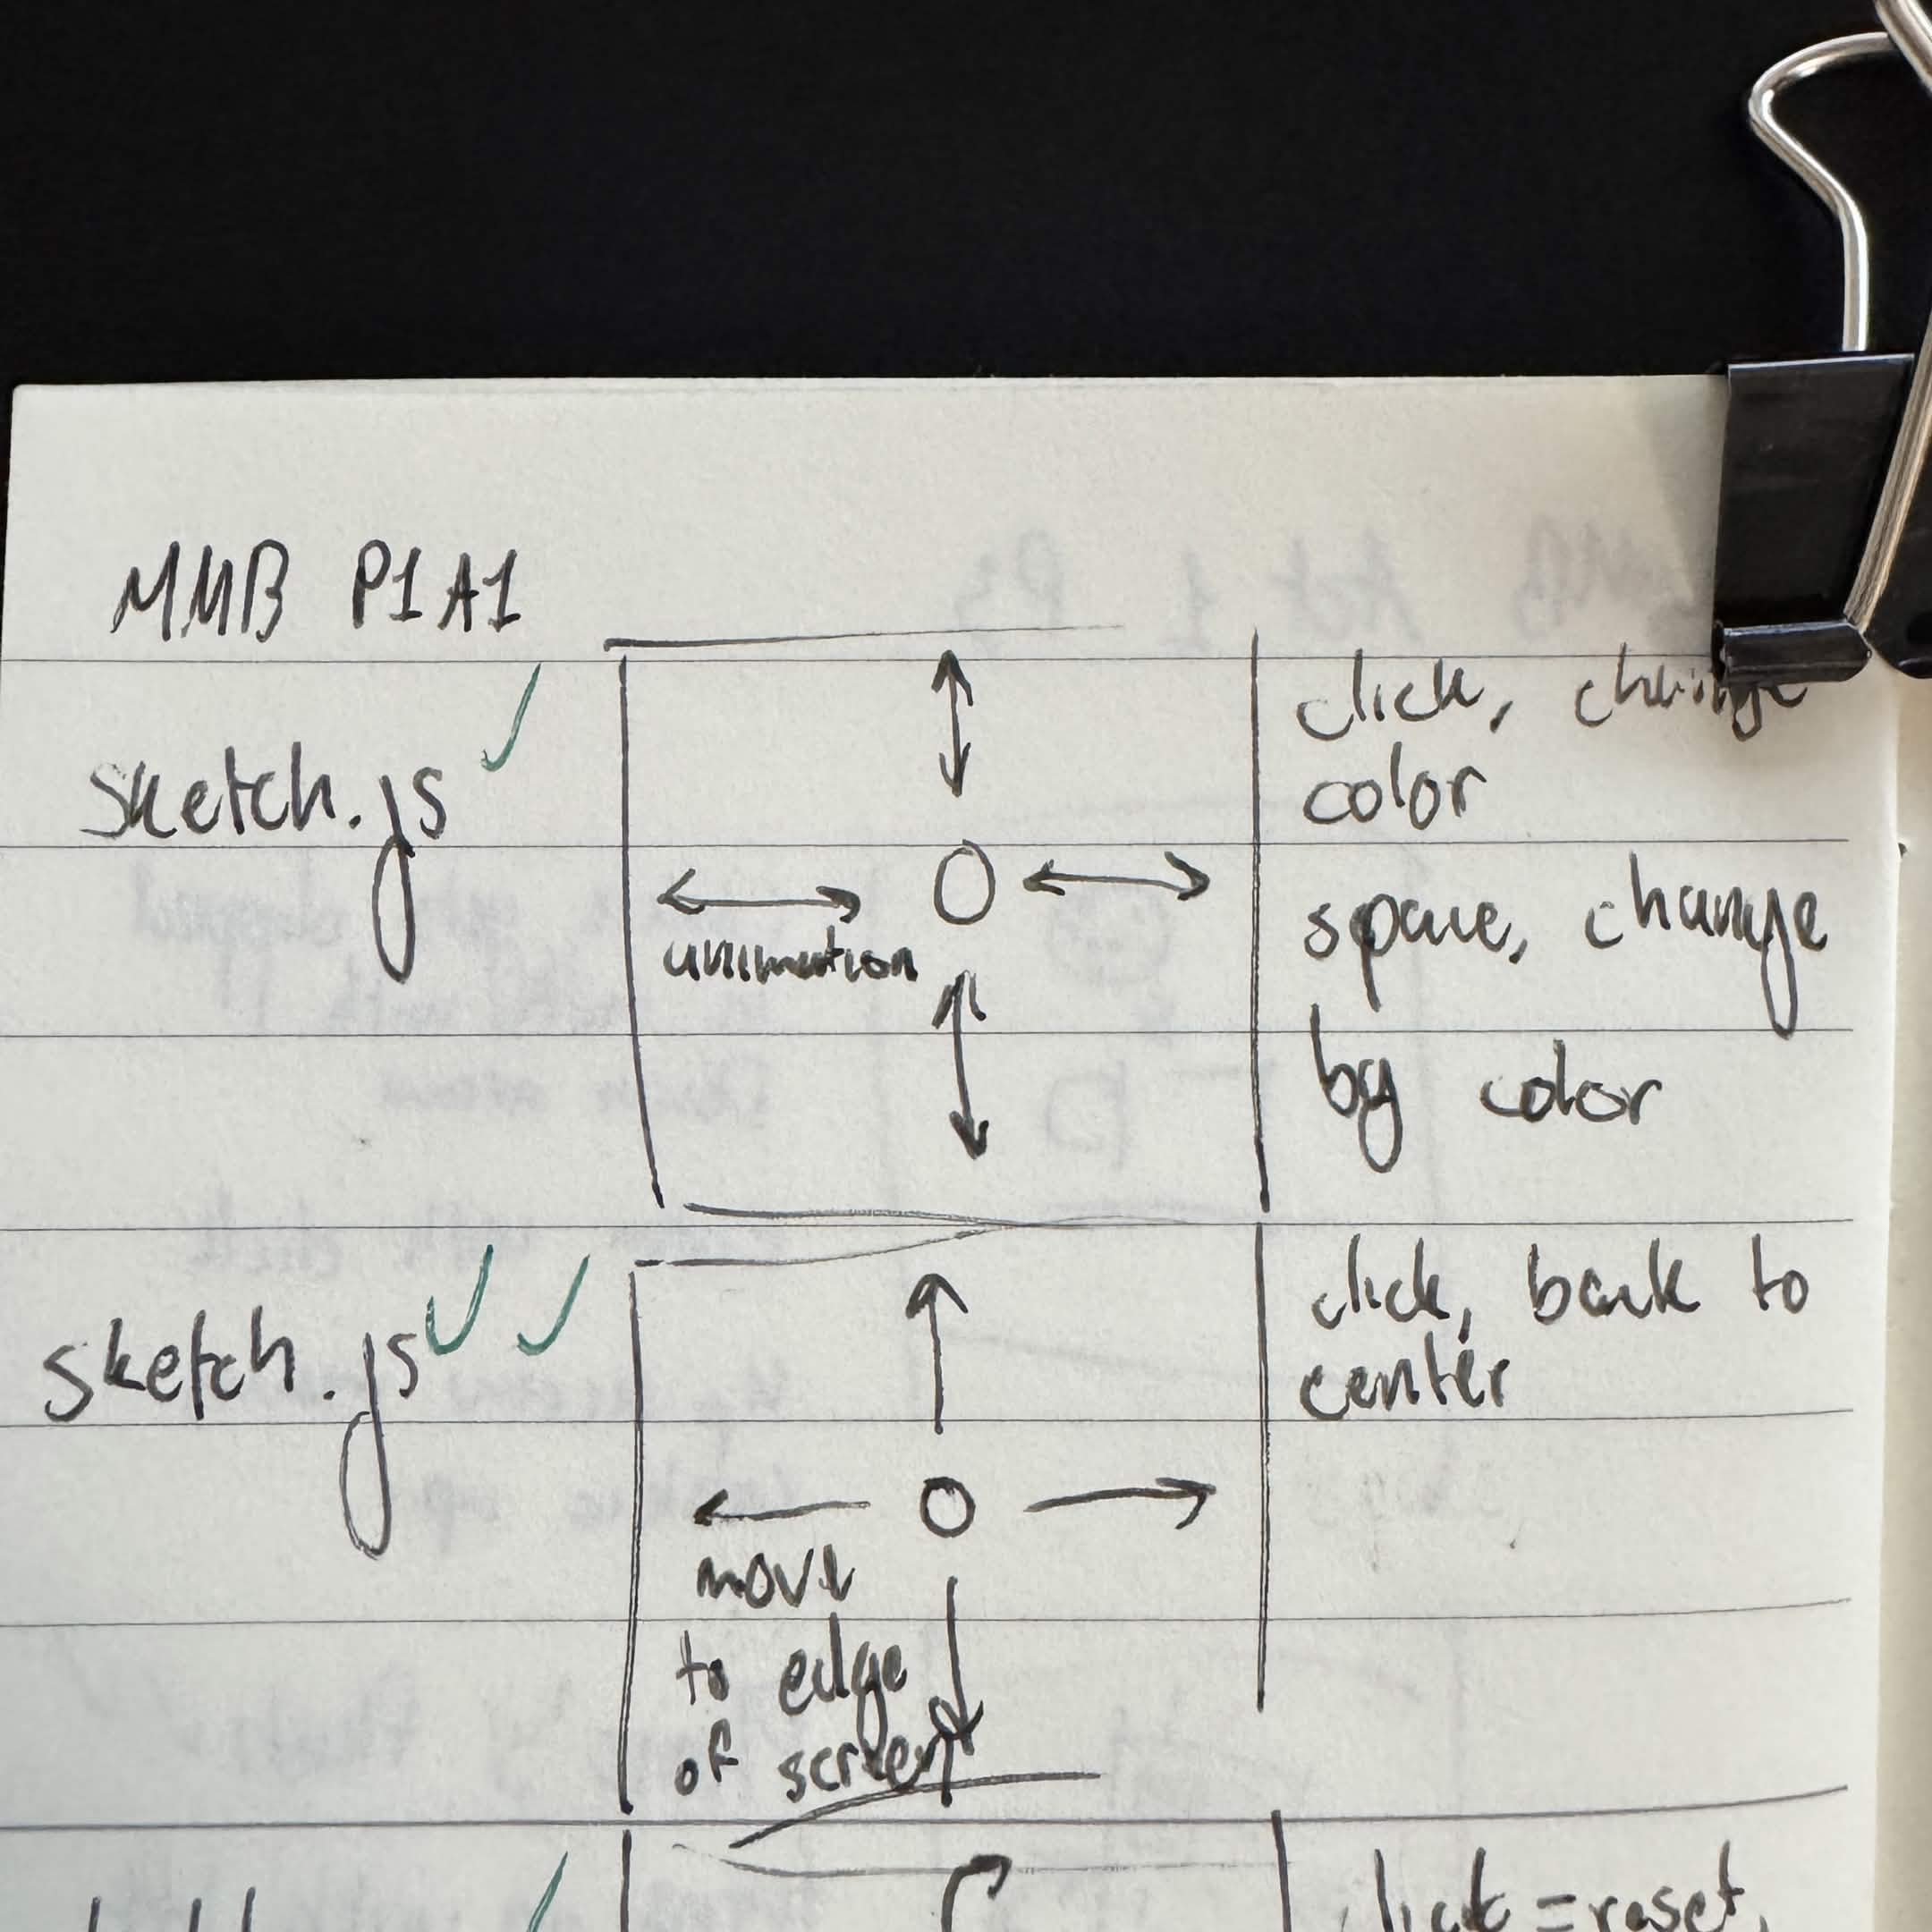 MMB P1A1
sketch.js
animation
click, change
color
space, change
by color
sketch.js
move
to edge
of screen
click, back to
center
click = reset,